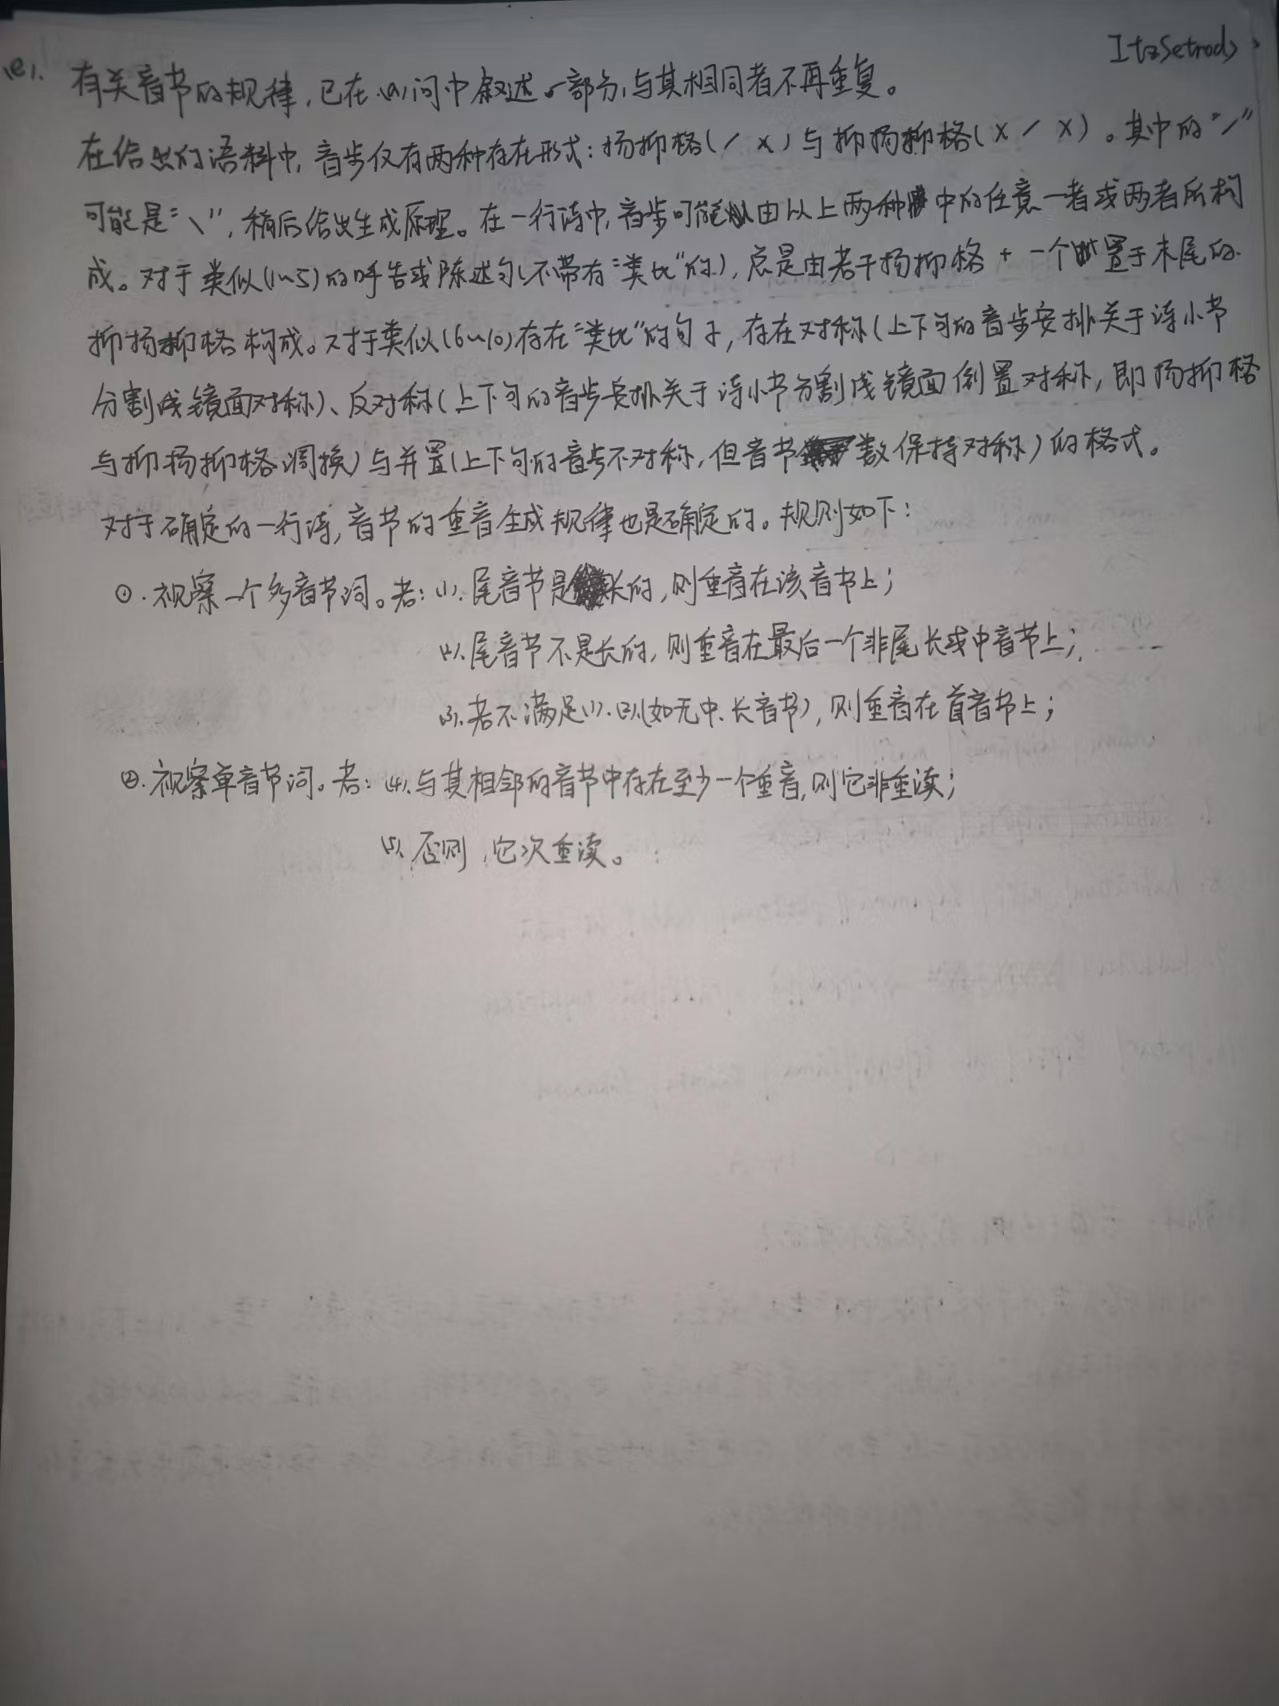 ItzSetrods
(e). 有关音节的规律,已在(a)问中叙述一部分,与其相同者不再重复。
在给出的语料中,音步仅有两种存在形式:扬抑格(／ ×)与抑扬抑格(× ／ ×)。其中的“／”
可能是“＼”,稍后给出生成原理。在一行诗中,音步可能由以上两种中的任意一者或两者所构
成。对于类似(1~5)的呼告或陈述句(不带有“类比”的),总是由若干扬抑格 + 一个置于末尾的
抑扬抑格构成。对于类似(6~10)存在“类比”的句子,存在对称(上下句的音步安排关于诗小节
分割线镜面对称)、反对称(上下句的音步安排关于诗小节分割线镜面倒置对称,即扬抑格
与抑扬抑格调换)与并置(上下句的音步不对称,但音节数保持对称)的格式。
对于确定的一行诗,音节的重音生成规律也是确定的。规则如下:
①.视察一个多音节词。若:(1).尾音节是长的,则重音在该音节上;
(2).尾音节不是长的,则重音在最后一个非尾长或中音节上;
(3).若不满足(1).(2)(如无中.长音节),则重音在首音节上;
②.视察单音节词。若:(4).与其相邻的音节中存在至少一个重音,则它非重读;
(5).否则,它次重读。